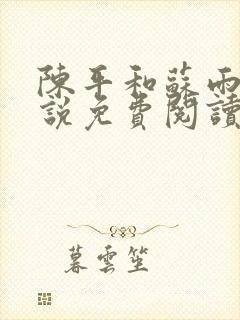 陳平和蘇雨
說免費閱讀
暮雲笙